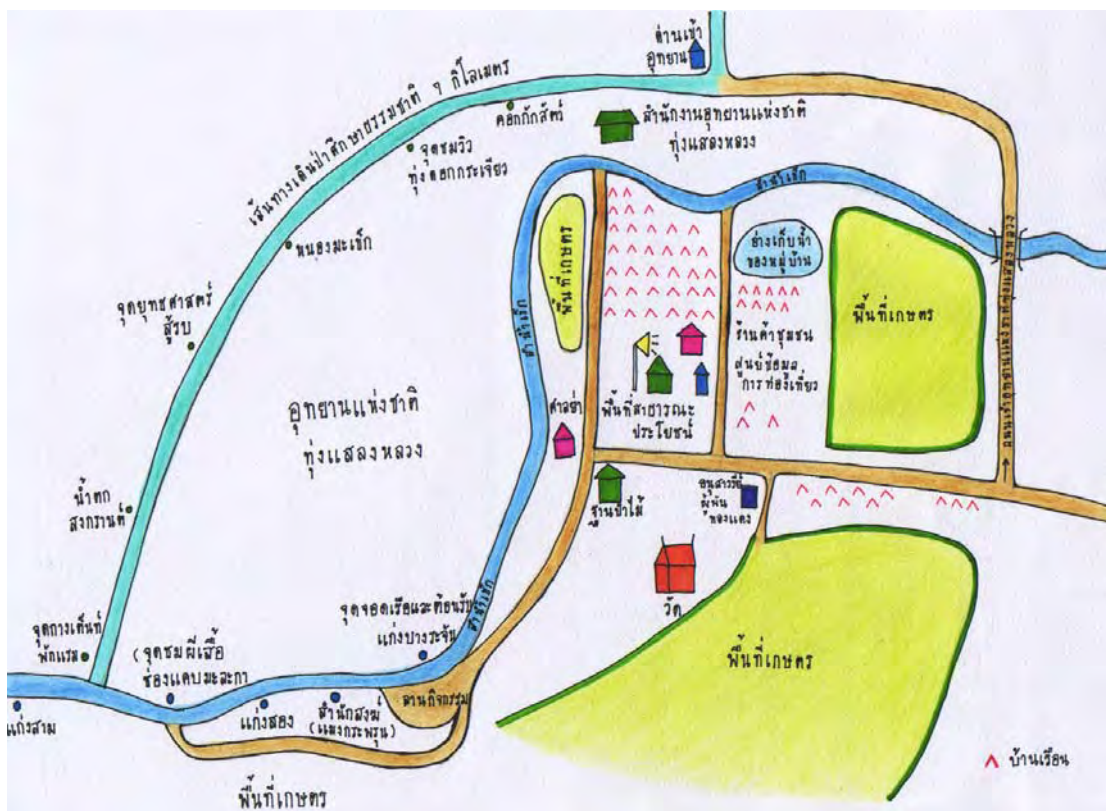 ด่านเข้า
อุทยาน
เส้นทางเดินป่าศึกษาธรรมชาติ ๆ กิโลเมตร
คอกกักสัตว์
สำนักงานอุทยานแห่งชาติ
ทุ่งแสลงหลวง
จุดชมวิว
ทุ่งดอกกระเจียว
ลำน้ำเข็ก
หนองมะเข็ก
อ่างเก็บน้ำ
ของหมู่บ้าน
พื้นที่เกษตร
พื้นที่เกษตร
ถนนเข้าอุทยานแห่งชาติทุ่งแสลงหลวง
จุดยุทธศาสตร์
สู้รบ
ลำน้ำเข็ก
ร้านค้าชุมชน
ศูนย์ข้อมูล
การท่องเที่ยว
อุทยานแห่งชาติ
ทุ่งแสลงหลวง
ศาลย่า
พื้นที่สาธารณะ
ประโยชน์
น้ำตก
สงกรานต์
ฐานป่าไม้
อนุสาวรีย์
ผู้พัน
ทองแดง
วัด
จุดจอดเรือและต้อนรับ
แก่งบางระจัน
ลำน้ำเข็ก
จุดกางเต็นท์
พักแรม
(จุดชมผีเสื้อ
ช่องแคบมะละกา
พื้นที่เกษตร
ลานกิจกรรม
แก่งสาม
แก่งสอง
สำนักสงฆ์
(แมงกะพรุน)
บ้านเรือน
พื้นที่เกษตร